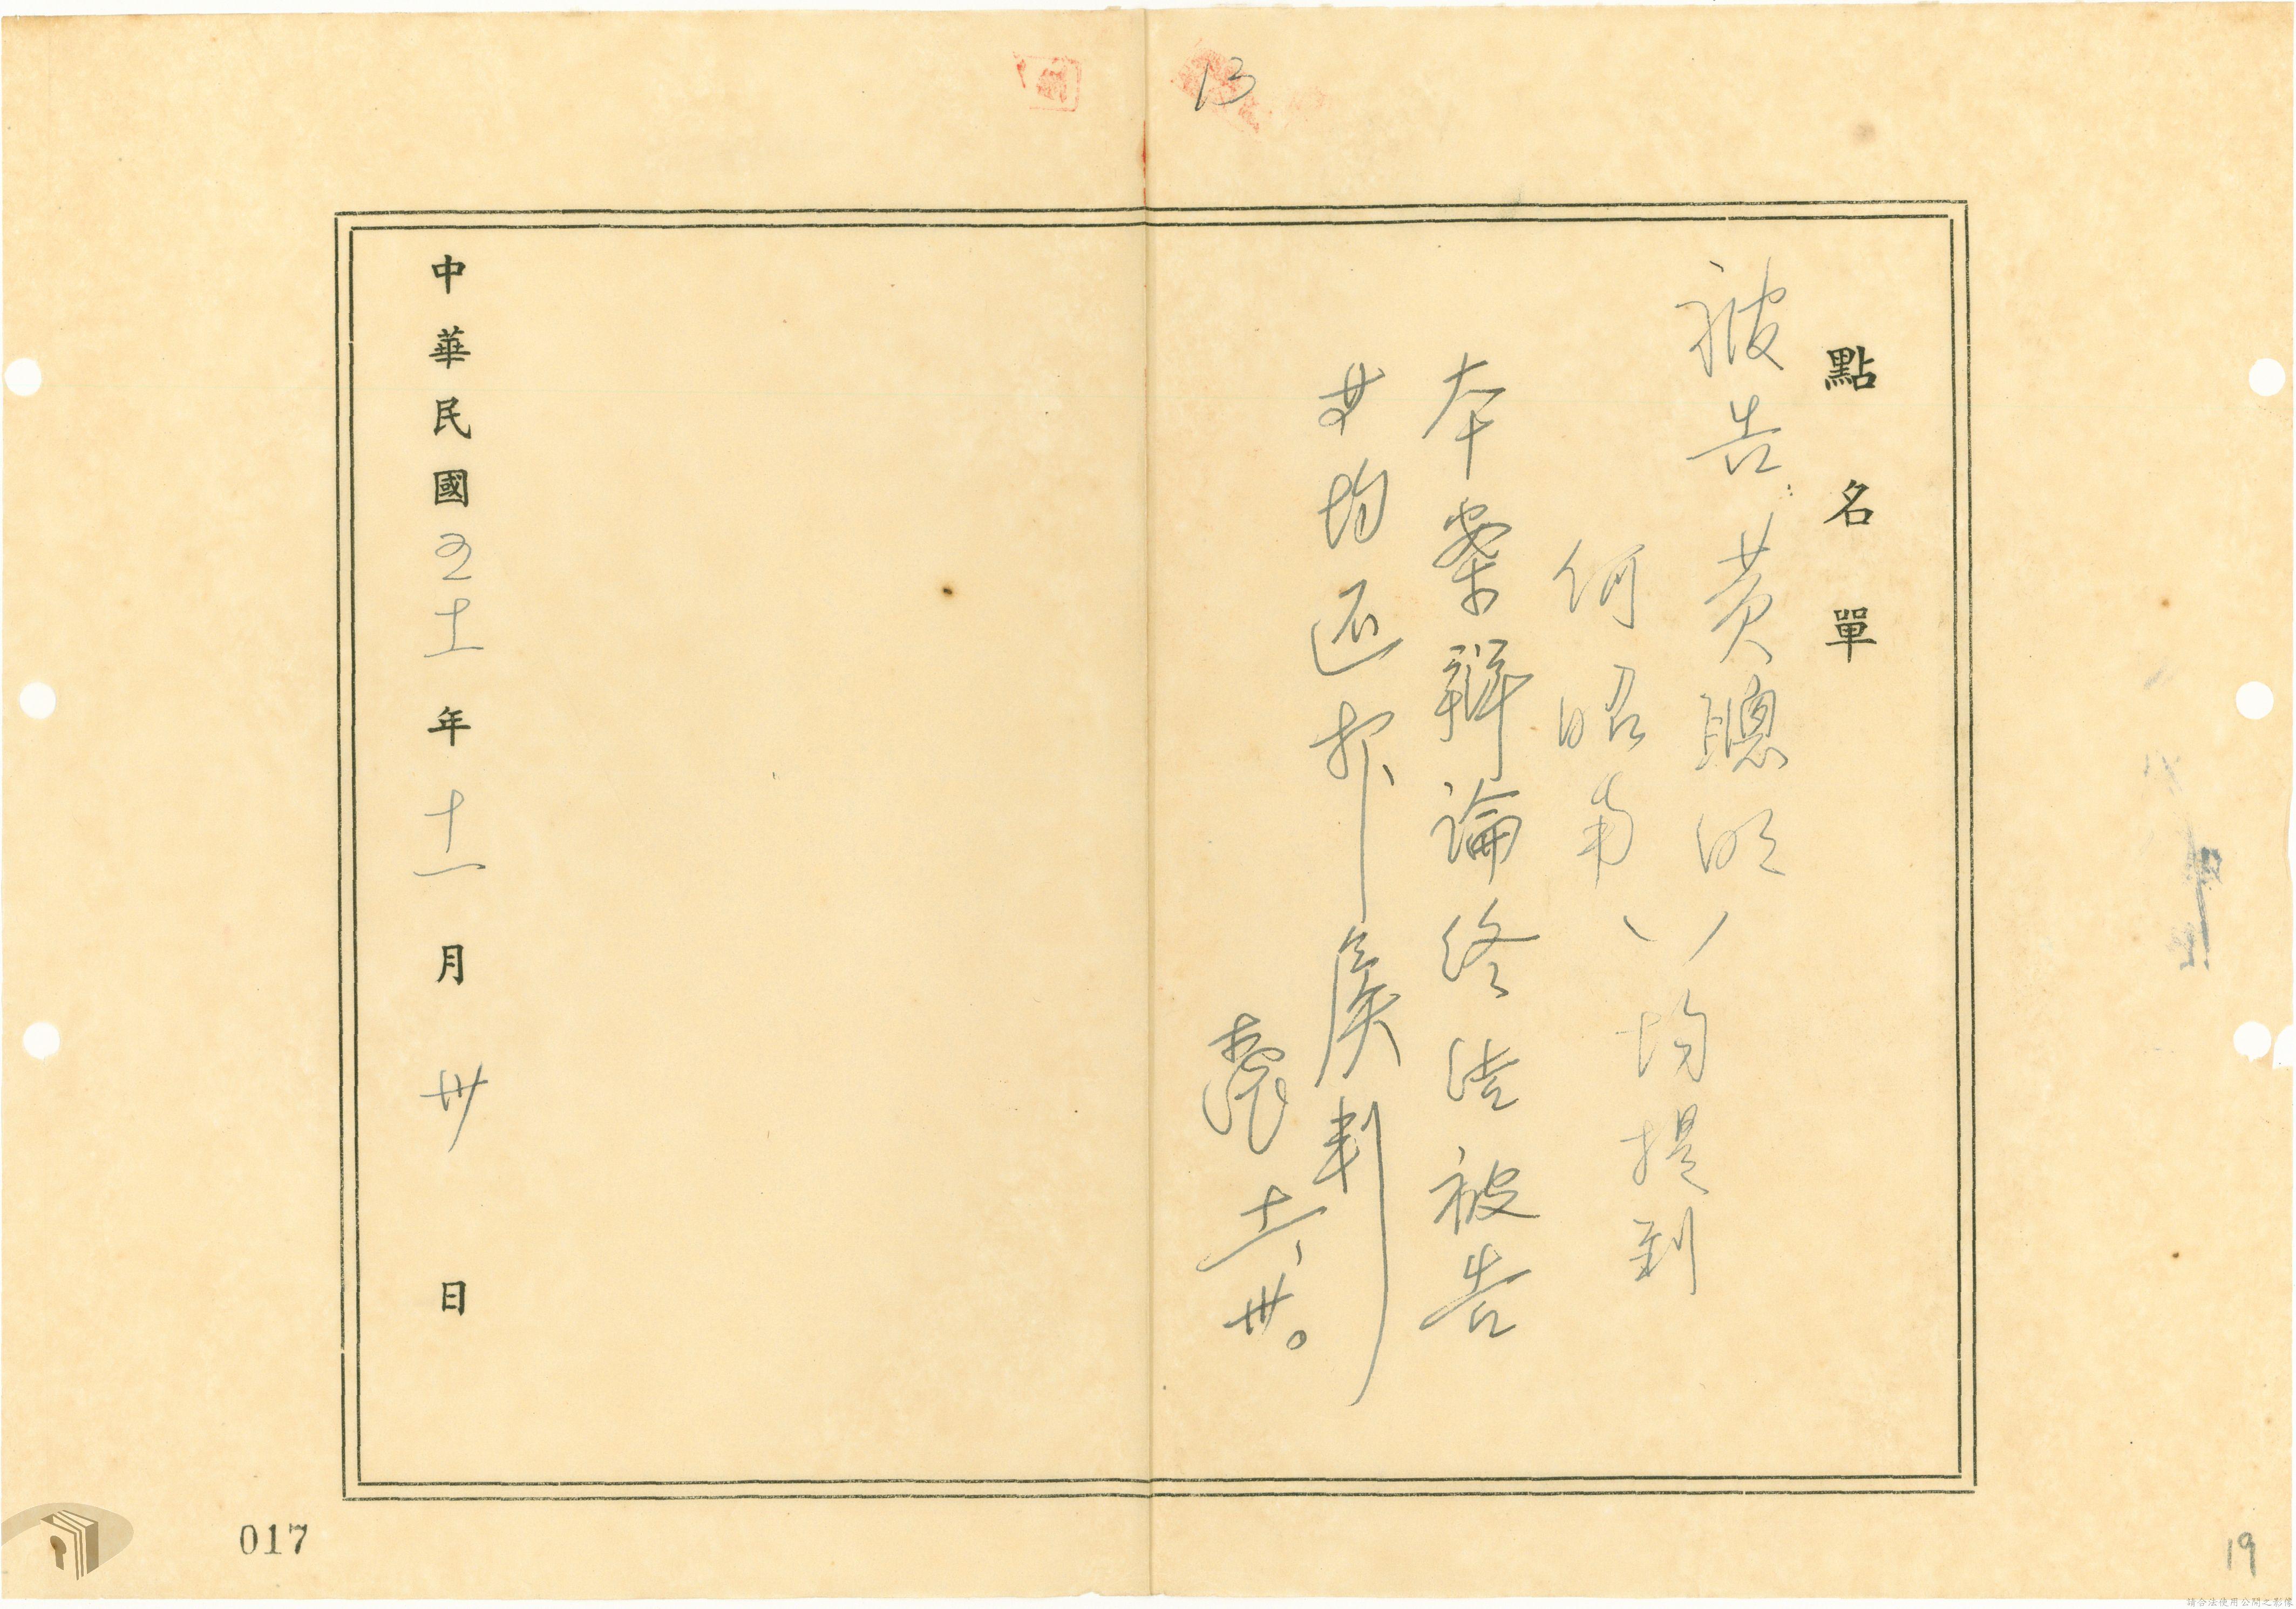 13
點名單
被告:黃聰明
何昭南
均提到
本案辯論終結被告
等均還押候判
十一、卅。
中華民國五十一年十一月卅日
017
19
請合法使用公開之影像